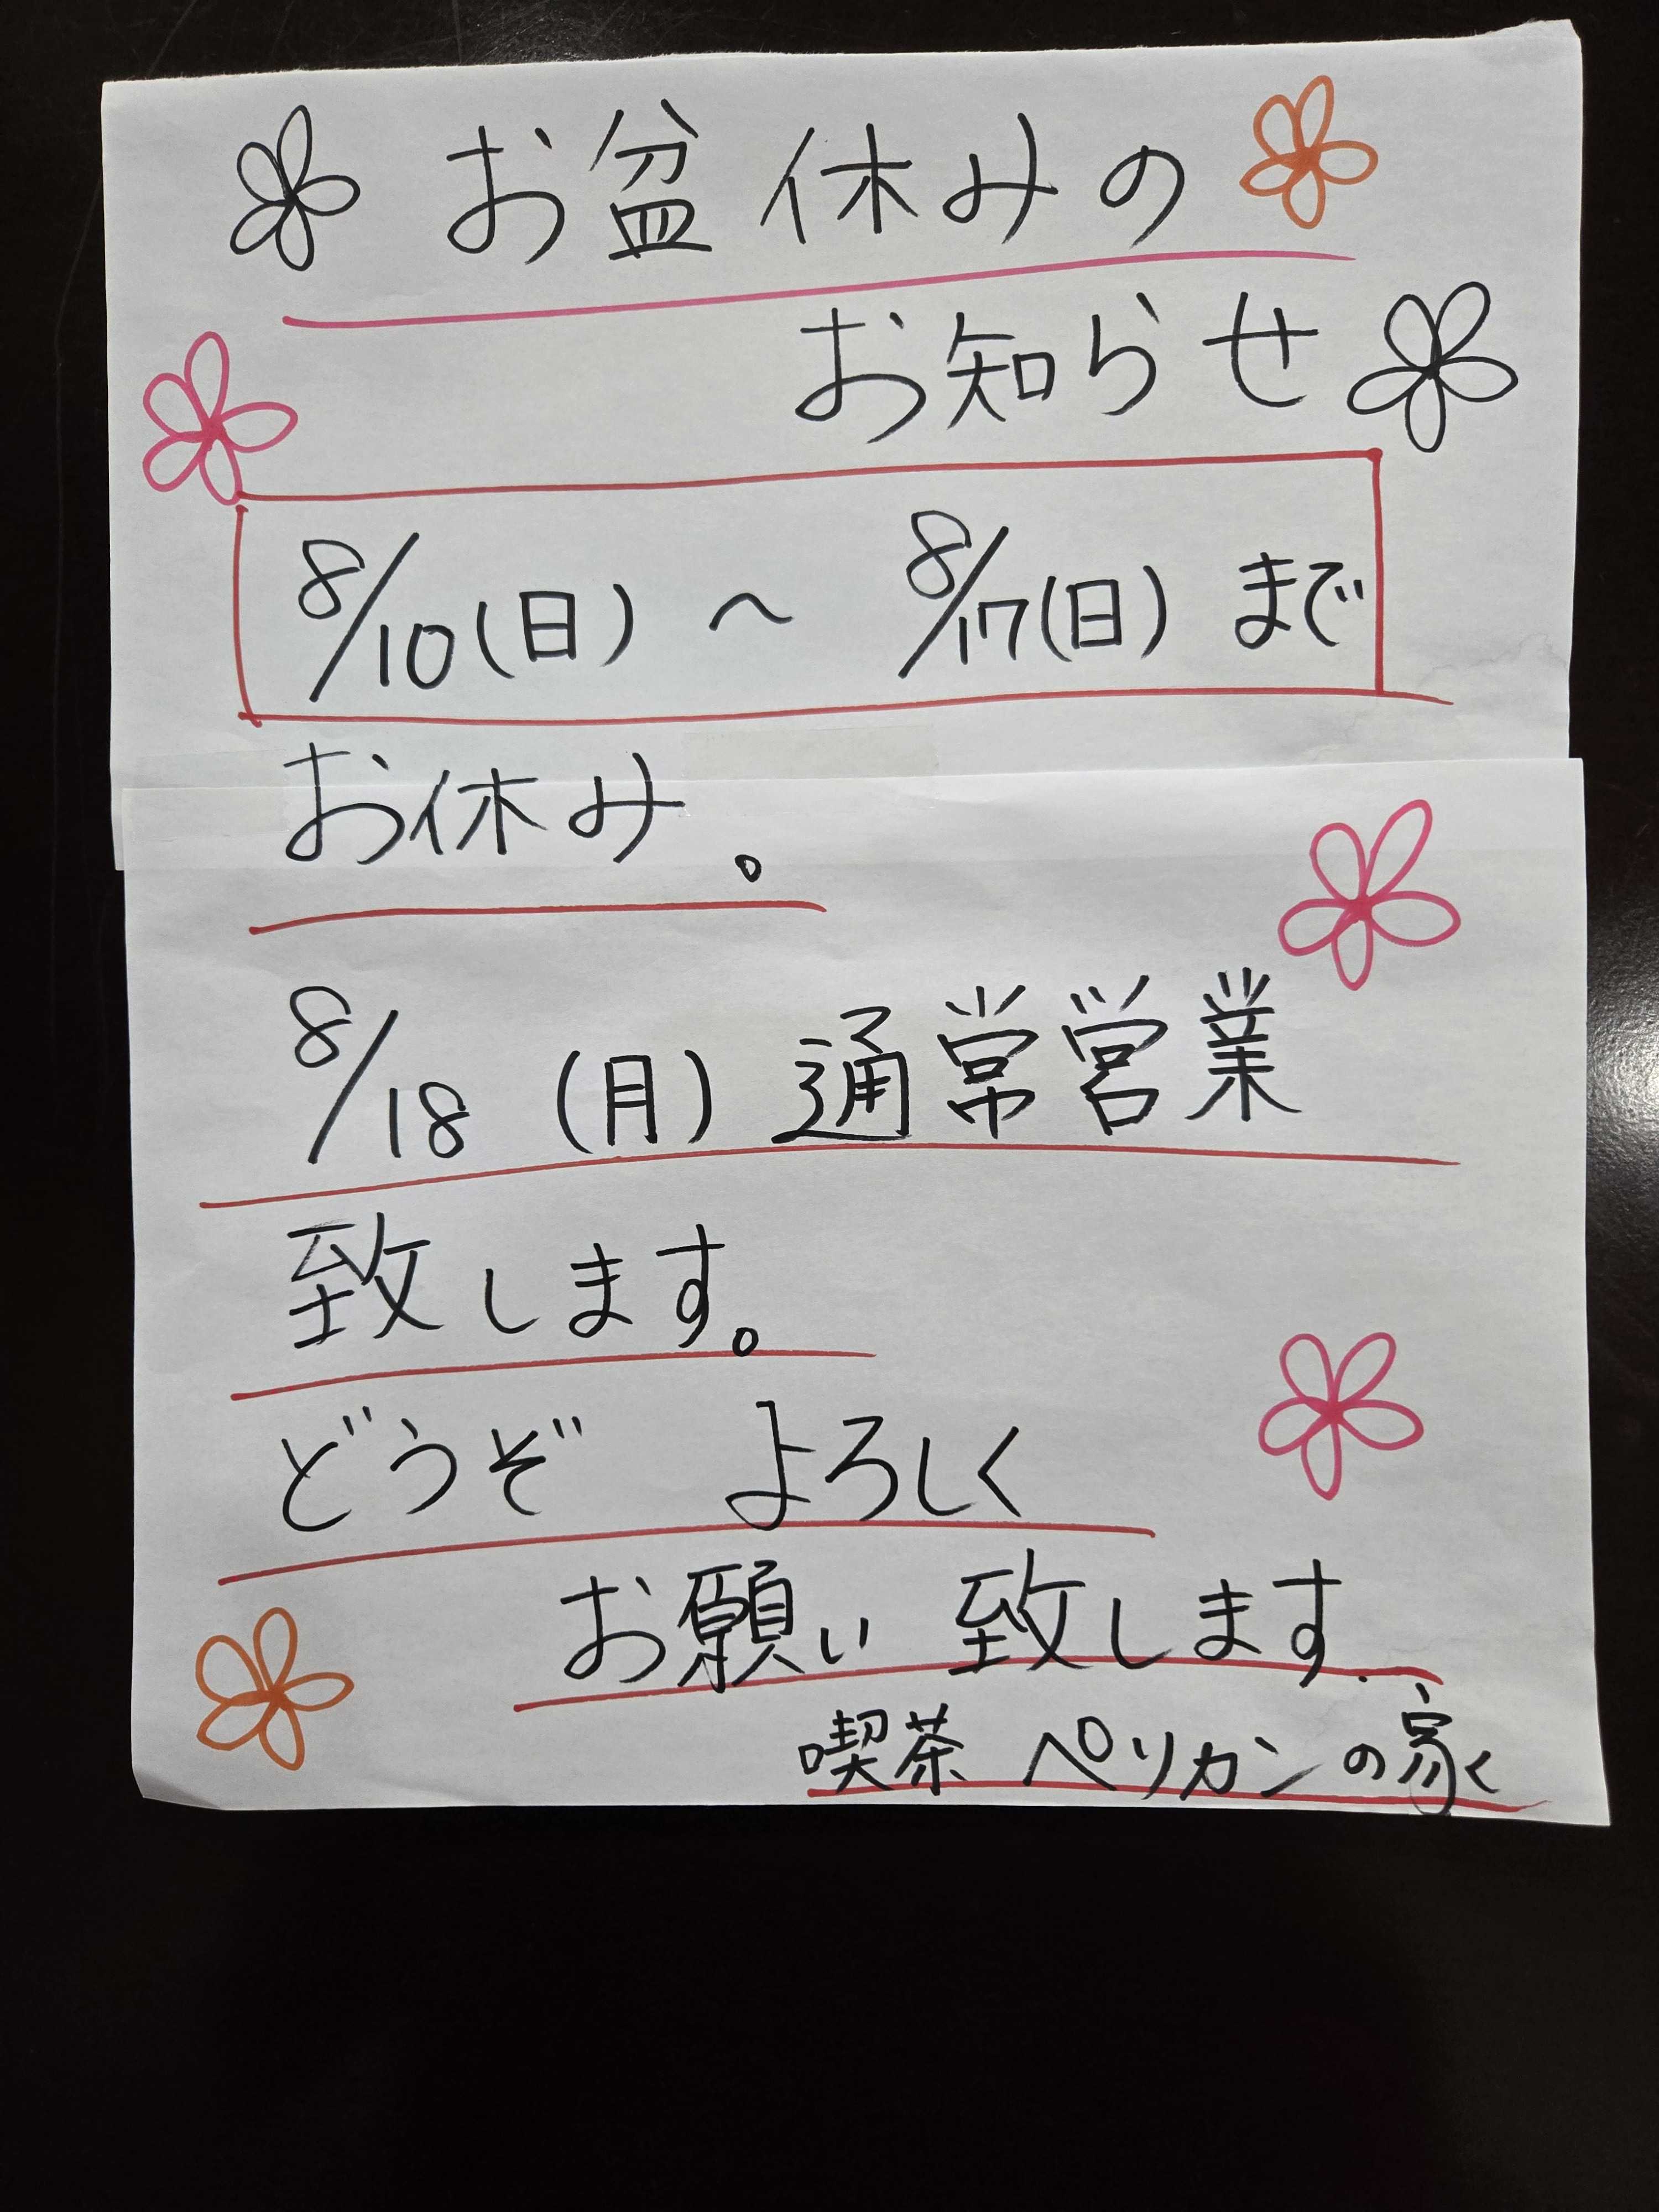 お盆休みの
お知らせ
8/10(日)～8/17(日)まで
お休み。
8/18(月)通常営業
致します。
どうぞ よろしく
お願い致します.
喫茶 ペリカンの家